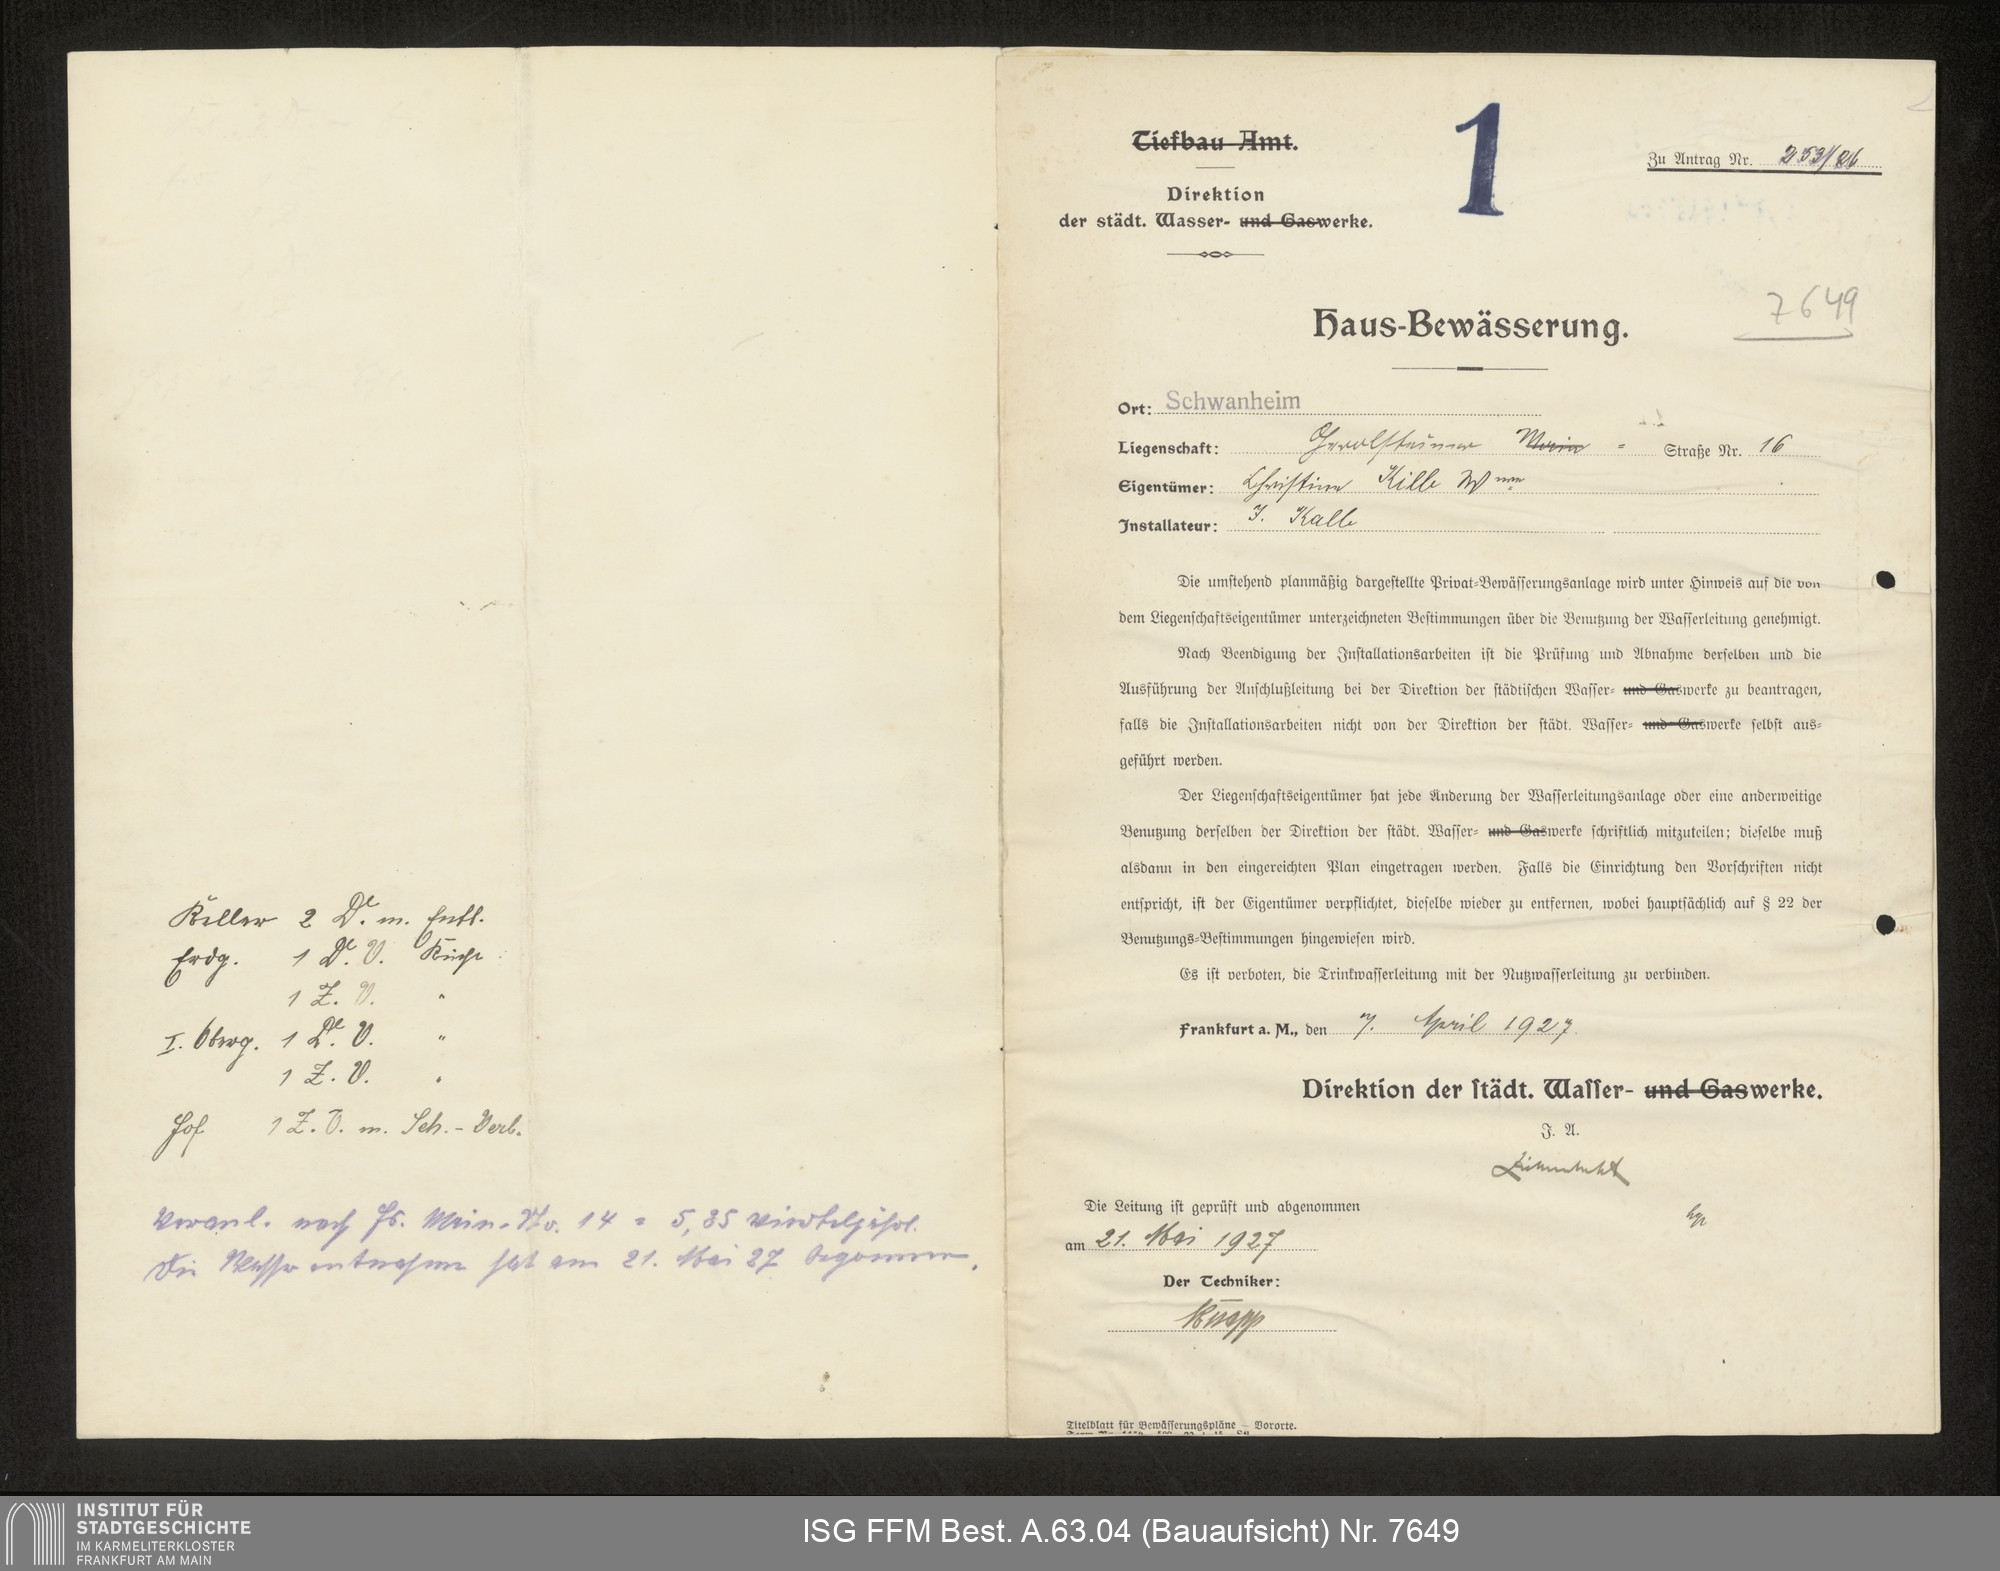 Keller 2 D.l m. Entl.
Erdg. 1 D.l V. Küche
1 Z. V. "
I. Oberg. 1 D.l V. "
1 Z. V. "
Hof 1 Z. V. m. Sch.-Verb.
Veranl. nach Fs. Main-Str. 14 = 5,85 vierteljährl.
Die Wasserentnahme hat am 21. Mai 27 begonnen.
Tiefbau-Amt.
Direktion
der städt. Wasser- und Gaswerke.
1
Zu Antrag Nr. 253/26
7649
Haus-Bewässerung.
Ort: Schwanheim
Liegenschaft: Gerolsteiner Main - Straße Nr. 16
Eigentümer: Christine Kille Wwe
Installateur: J. Kalle
Die umstehend planmäßig dargestellte Privat-Bewässerungsanlage wird unter Hinweis auf die von
dem Liegenschaftseigentümer unterzeichneten Bestimmungen über die Benutzung der Wasserleitung genehmigt.
Nach Beendigung der Installationsarbeiten ist die Prüfung und Abnahme derselben und die
Ausführung der Anschlußleitung bei der Direktion der städtischen Wasser- und Gaswerke zu beantragen,
falls die Installationsarbeiten nicht von der Direktion der städt. Wasser- und Gaswerke selbst aus-
geführt werden.
Der Liegenschaftseigentümer hat jede Änderung der Wasserleitungsanlage oder eine anderweitige
Benutzung derselben der Direktion der städt. Wasser- und Gaswerke schriftlich mitzuteilen; dieselbe muß
alsdann in den eingereichten Plan eingetragen werden. Falls die Einrichtung den Vorschriften nicht
entspricht, ist der Eigentümer verpflichtet, dieselbe wieder zu entfernen, wobei hauptsächlich auf § 22 der
Benutzungs-Bestimmungen hingewiesen wird.
Es ist verboten, die Trinkwasserleitung mit der Nutzwasserleitung zu verbinden.
Frankfurt a. M., den 7. April 1927
Direktion der städt. Wasser- und Gaswerke.
J. A.
Die Leitung ist geprüft und abgenommen
am 21. Mai 1927
Der Techniker:
Knapp
Titelblatt für Bewässerungspläne – Vororte.
INSTITUT FÜR
STADTGESCHICHTE
IM KARMELITERKLOSTER
FRANKFURT AM MAIN
ISG FFM Best. A.63.04 (Bauaufsicht) Nr. 7649